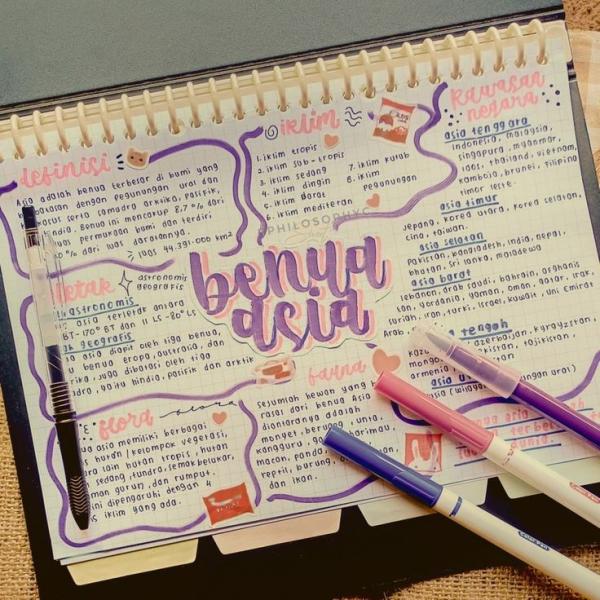 definisi
Asia adalah benua terbesar di bumi yang
dengan pegunungan ural dan
serta samudra arktika, pasifik,
hindia. Benua ini mencakup 8,7% dari
luas permukaan bumi dan terdiri
% dari luas daratannya.
luas 44.391.000 km²
letak
astronomis
geografis
astronomis
terletak antara
BT-170° BT dan 11° LS-80° LS
geografis
asia diapit oleh tiga benua,
benua eropa, australia, dan
juga dibatasi oleh tiga
yaitu hindia, pasifik dan arktik
flora
flora
asia memiliki berbagai
hutan/kelompok vegetasi,
lain hutan tropis, hutan
sedang, tundra, semak belukar,
gurun, dan rumput
ini dipengaruhi dengan 4
iklim yang ada.
iklim
1. iklim tropis
2. iklim sub-tropis
3. iklim sedang
4. iklim dingin
5. iklim Barat
6. iklim mediteran
7. iklim kutub
8. iklim
pegunungan
PHILOSOPHYC
benua
asia
fauna
Sejumlah hewan
dari benua Asia
diantaranya adalah
monyet, beruang, unta,
kangguru, harimau,
macan, panda,
reptil, burung,
dan ikan.
kawasan
negara
asia tenggara
indonesia, malaysia,
singapura, myanmar,
laos, thailand, vietnam,
kamboja, brunei, filipina
timor leste.
asia timur
Jepang, korea utara, korea selatan,
cina, taiwan.
asia selatan
Pakistan, bangladesh, india, nepal,
bhutan, sri lanka, maladewa
asia barat
lebanon, arab saudi, bahrain, afghanis
tan, yordania, yaman, oman, qatar, irak,
iran, turki, israel, kuwait, uni emirat
Arab
asia tengah
azerbaijan, kyrgyzstan,
pakistan, tajikistan,
armenia
asia
asia